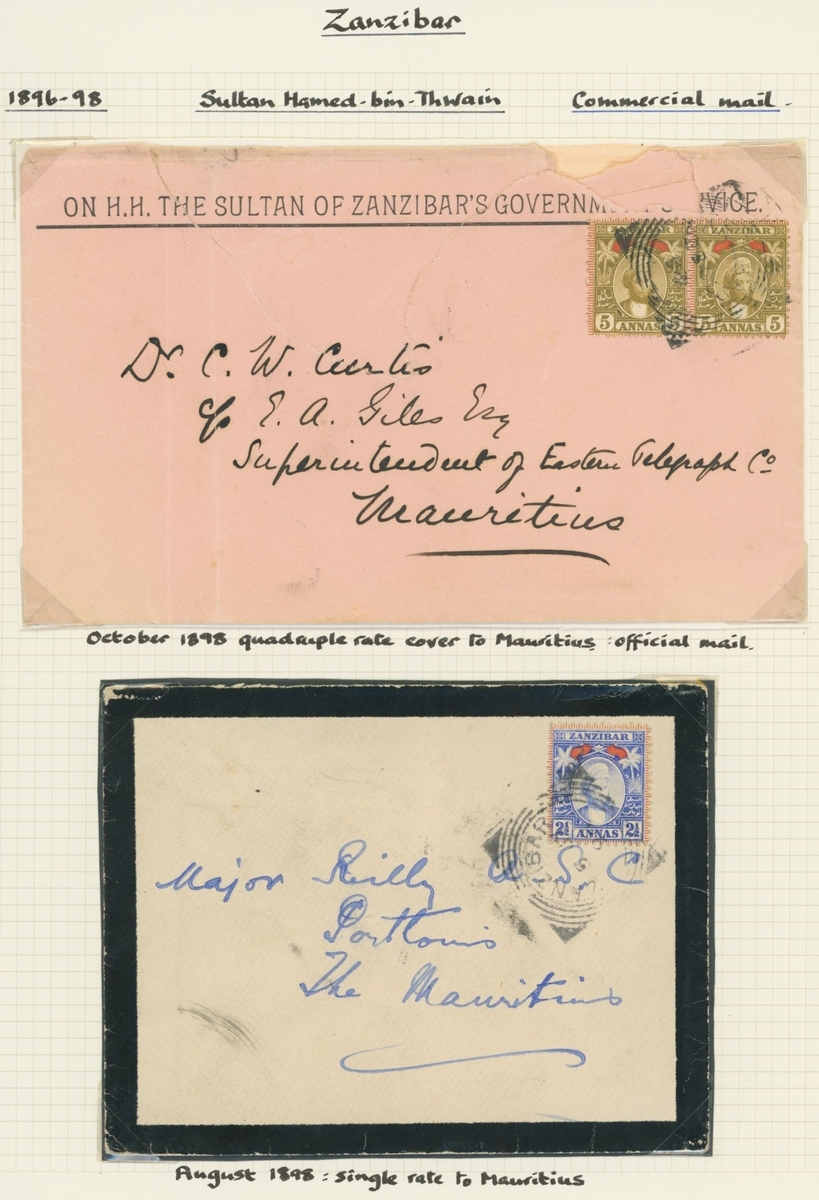 Zanzibar
1896-98 Sultan Hamed-bin-Thwain Commercial mail.
ON H.H. THE SULTAN OF ZANZIBAR'S GOVERNM VICE.
ZANZIBAR ZANZIBAR
5 ANNAS 5 5 ANNAS 5
Dr. C. W. Curtis
c/o E. A. Giles Esq
Superintendent of Eastern Telegraph Co
Mauritius
October 1898 quadruple rate cover to Mauritius : official mail.
ZANZIBAR
2½ ANNAS 2½
ZANZIBAR
Major Reilly A S C
Portlouis
The Mauritius
August 1898 : single rate to Mauritius